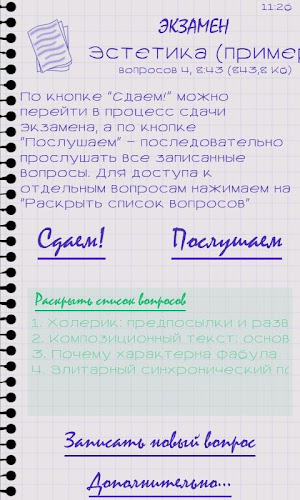 11:26
ЭКЗАМЕН
Эстетика (пример
вопросов 4, 8:43 (843,8 Кб)
По кнопке "Сдаем!" можно
перейти в процесс сдачи
Экзамена, а по кнопке
"Послушаем" - последовательно
прослушать все записанные
вопросы. Для доступа к
отдельным вопросам нажимаем на
"Раскрыть список вопросов"
Сдаем! Послушаем
Раскрыть список вопросов
1. Холерик: предпосылки и разв
2. Композиционный текст: основ
3. Почему характерна фабула
4. Элитарный синхронический по
Записать новый вопрос
Дополнительно...